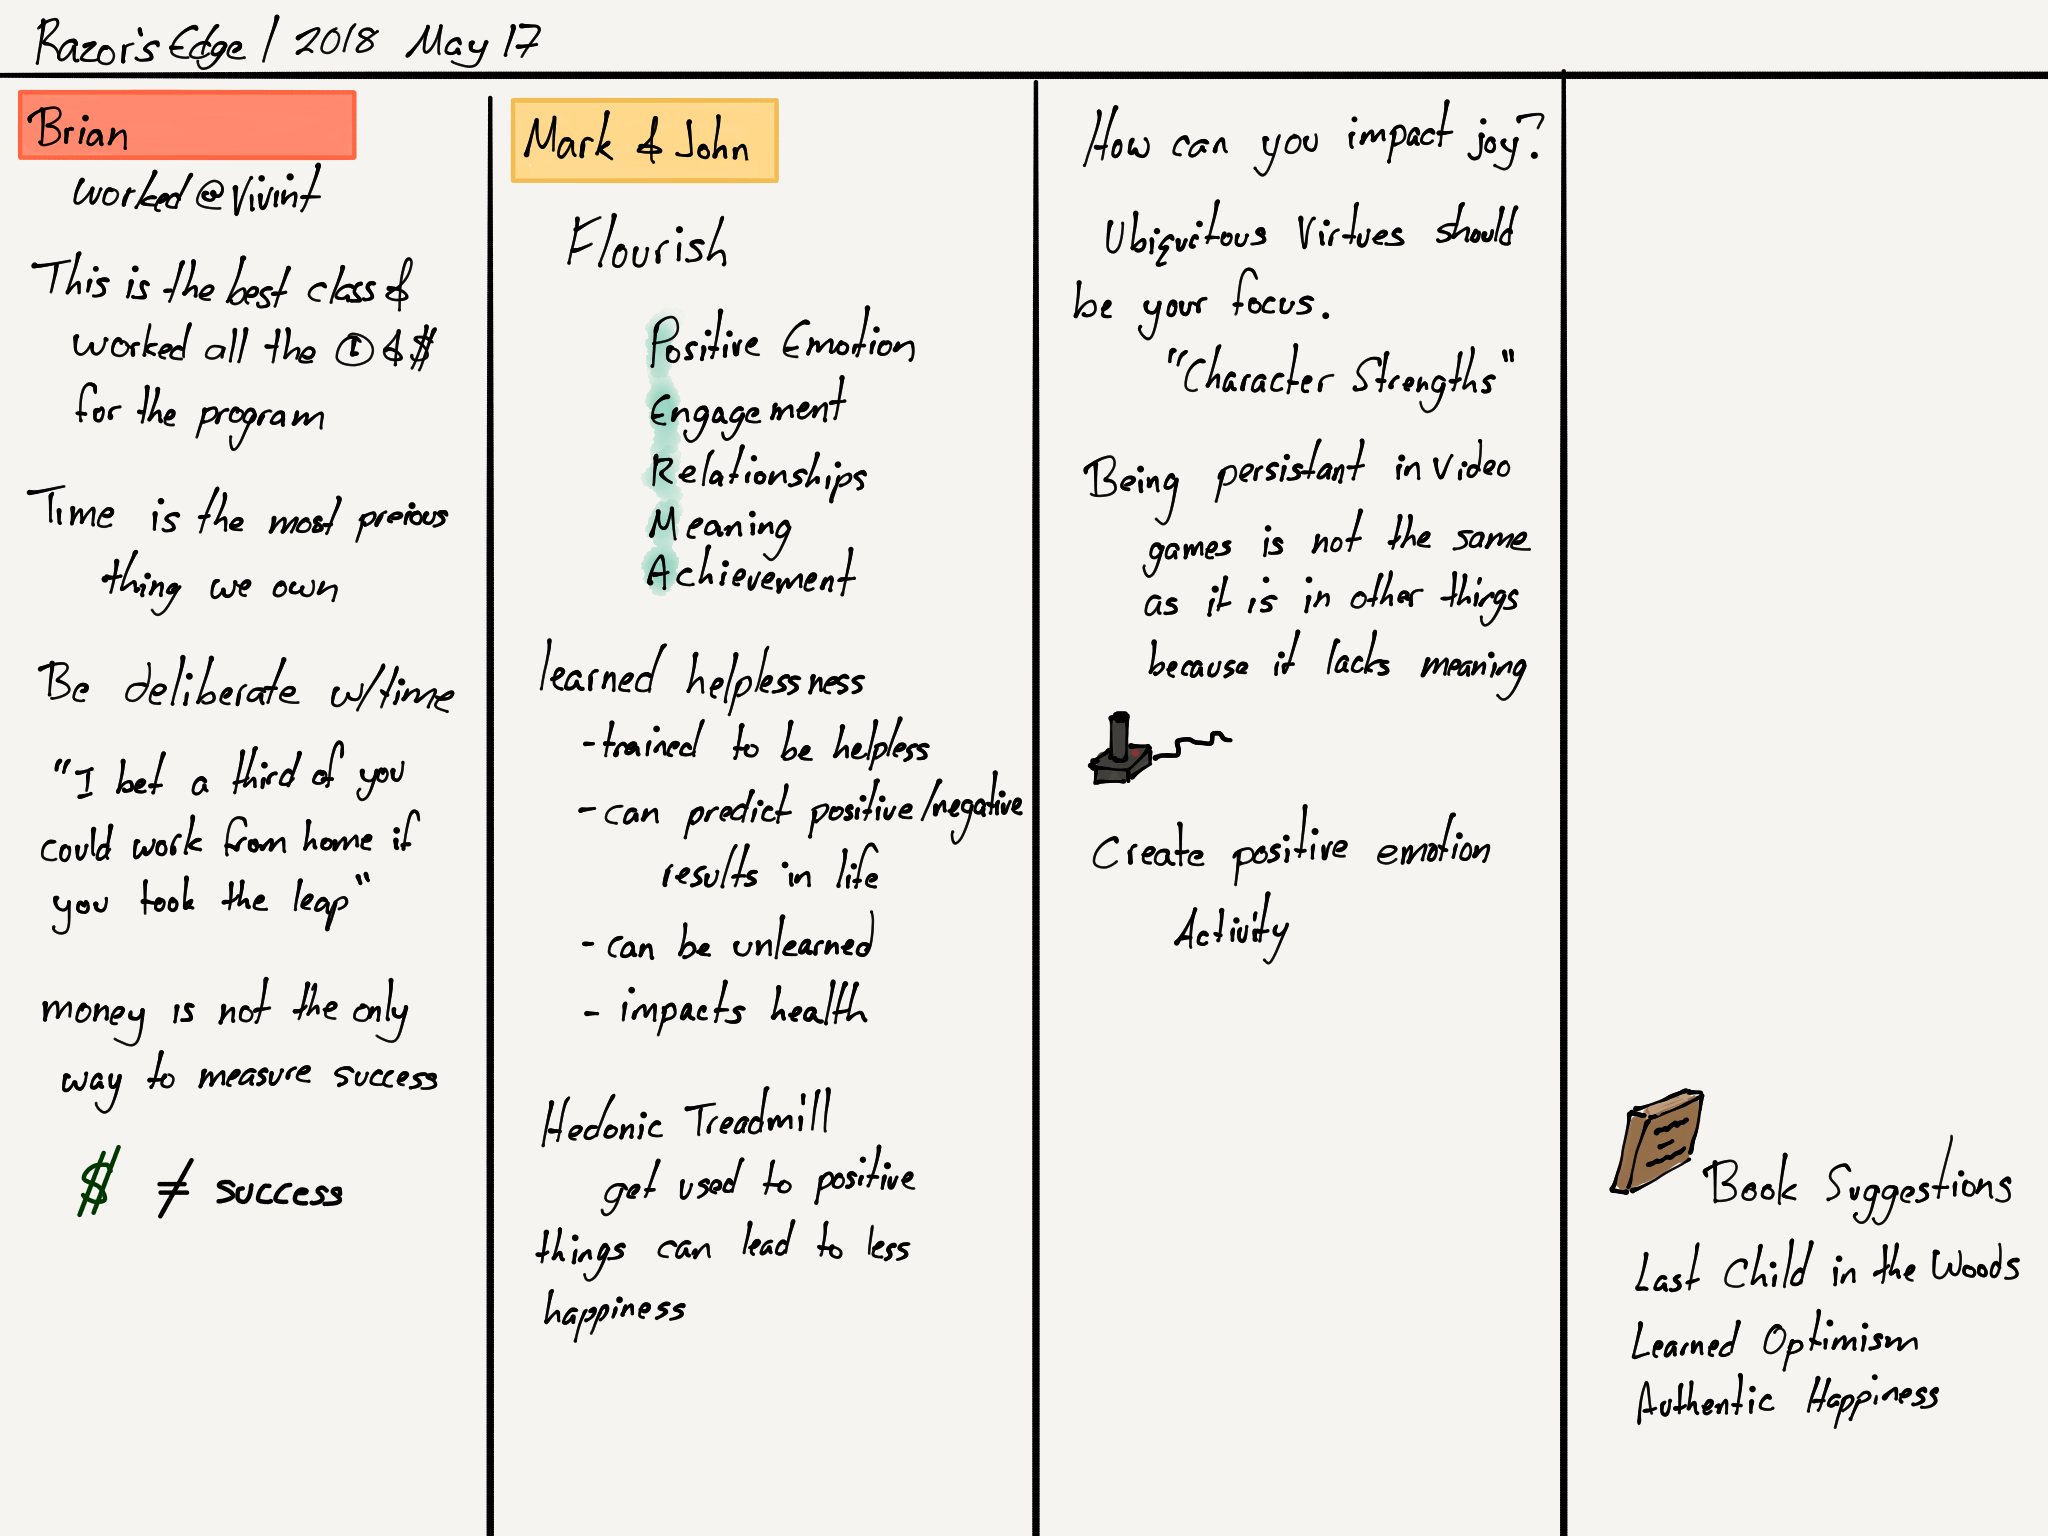 Razor's Edge / 2018 May 17
Brian
worked @ Vivint
This is the best class &
worked all the ① & $
for the program
Time is the most preious
thing we own
Be deliberate w/time
"I bet a third of you
could work from home if
you took the leap"
money is not the only
way to measure success
$ ≠ success
Mark & John
Flourish
Positive Emotion
Engagement
Relationships
Meaning
Achievement
learned helplessness
- trained to be helpless
- can predict positive/negative
results in life
- can be unlearned
- impacts health
Hedonic Treadmill
get used to positive
things can lead to less
happiness
How can you impact joy?
Ubiquitous Virtues should
be your focus.
"Character Strengths"
Being persistant in video
games is not the same
as it is in other things
because it lacks meaning
Create positive emotion
Activity
Book Suggestions
Last Child in the Woods
Learned Optimism
Authentic Happiness